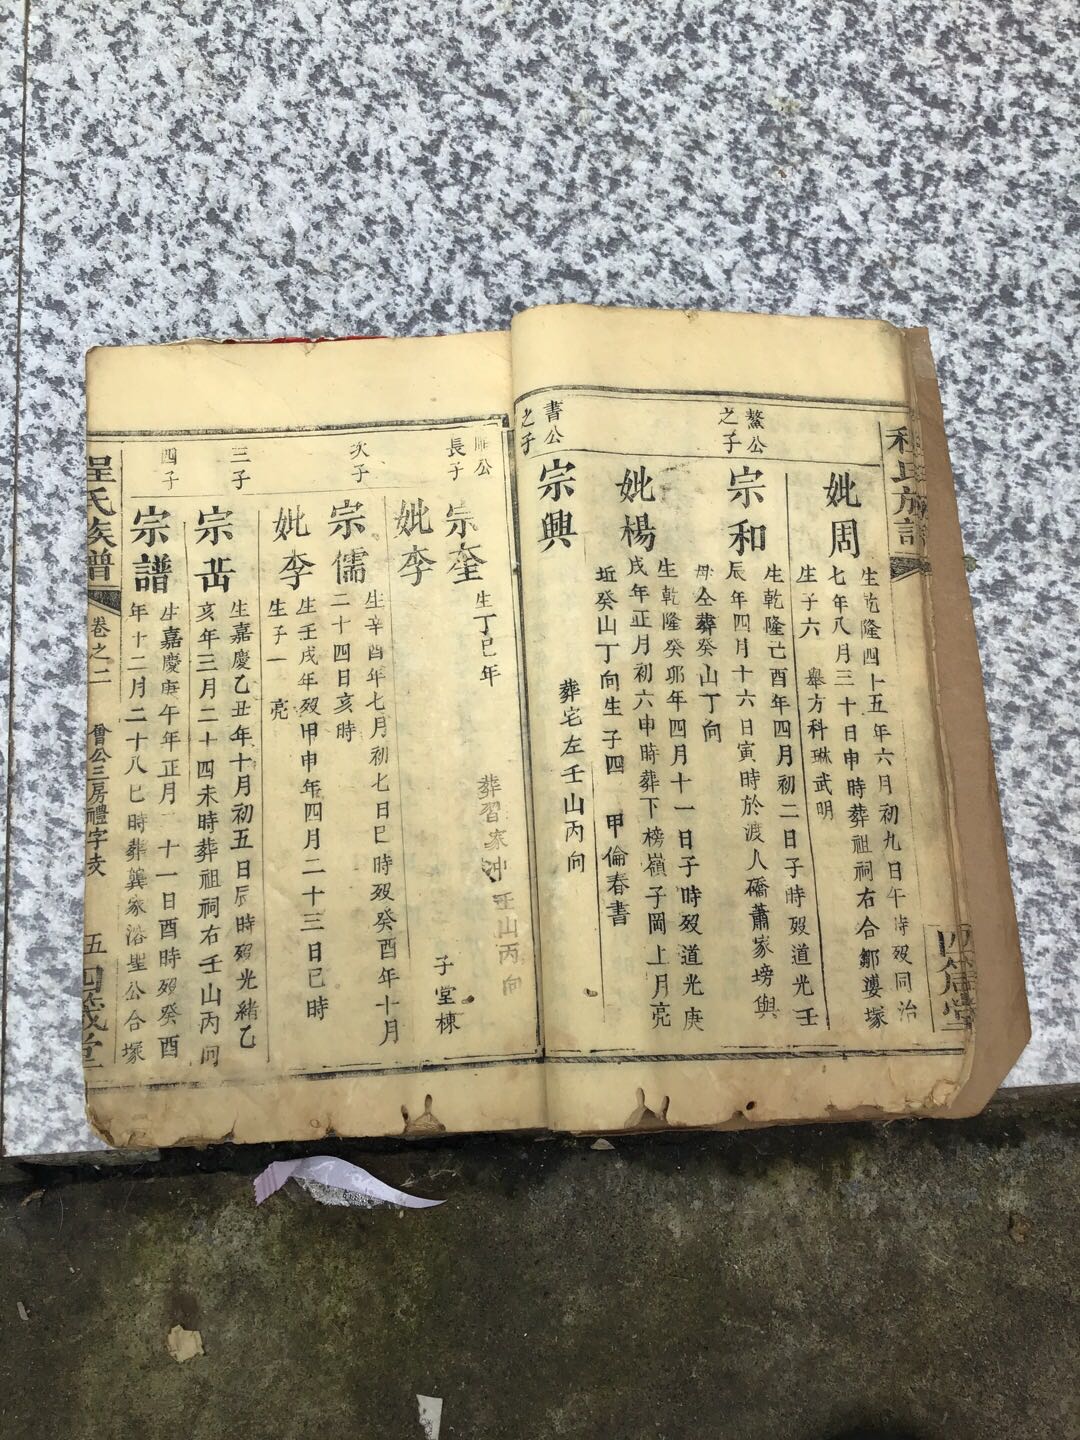 程氏族譜
妣周
生乾隆四十五年六月初九日午時歿同治
七年八月三十日申時葬祖祠右合鄒婆塚
生子六 舉方科琳武明
鰲公
之子
宗和
生乾隆己酉年四月初二日子時歿道光壬
辰年四月十六日寅時於渡人礄蕭家塝與
母仝葬癸山丁向
妣楊
生乾隆癸卯年四月十一日子時歿道光庚
戌年正月初六申時葬下榜嶺子岡上月亮
近癸山丁向生子四 甲倫春書
書公
之子
宗興
葬宅左壬山丙向
公
長子
宗奎
生丁巳年 葬習家沖壬山丙向
妣李
子堂棟
次子
宗儒
生辛酉年七月初七日巳時歿癸酉年十月
二十四日亥時
妣李
生壬戌年歿甲申年四月二十三日巳時
生子一 亮
三子
宗岳
生嘉慶乙丑年十月初五日辰時歿光緒乙
亥年三月二十四未時葬祖祠右壬山丙向
四子
宗譜
生嘉慶庚午年正月二十一日酉時歿癸酉
年十二月二十八巳時葬龔家浴聖公合塚
程氏族譜 卷之二 會公三房禮字支 五 四箴堂